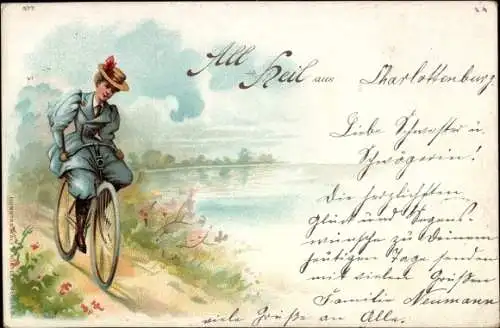 All Heil aus Charlottenburg.
Liebe Schwester u.
Schwägerin!
Die herzlichsten
Glück und Segens
wünsche zu Deinem
heutigen Tage senden
mit vielen Grüßen
Familie Neumann
viele Grüße an Alle.